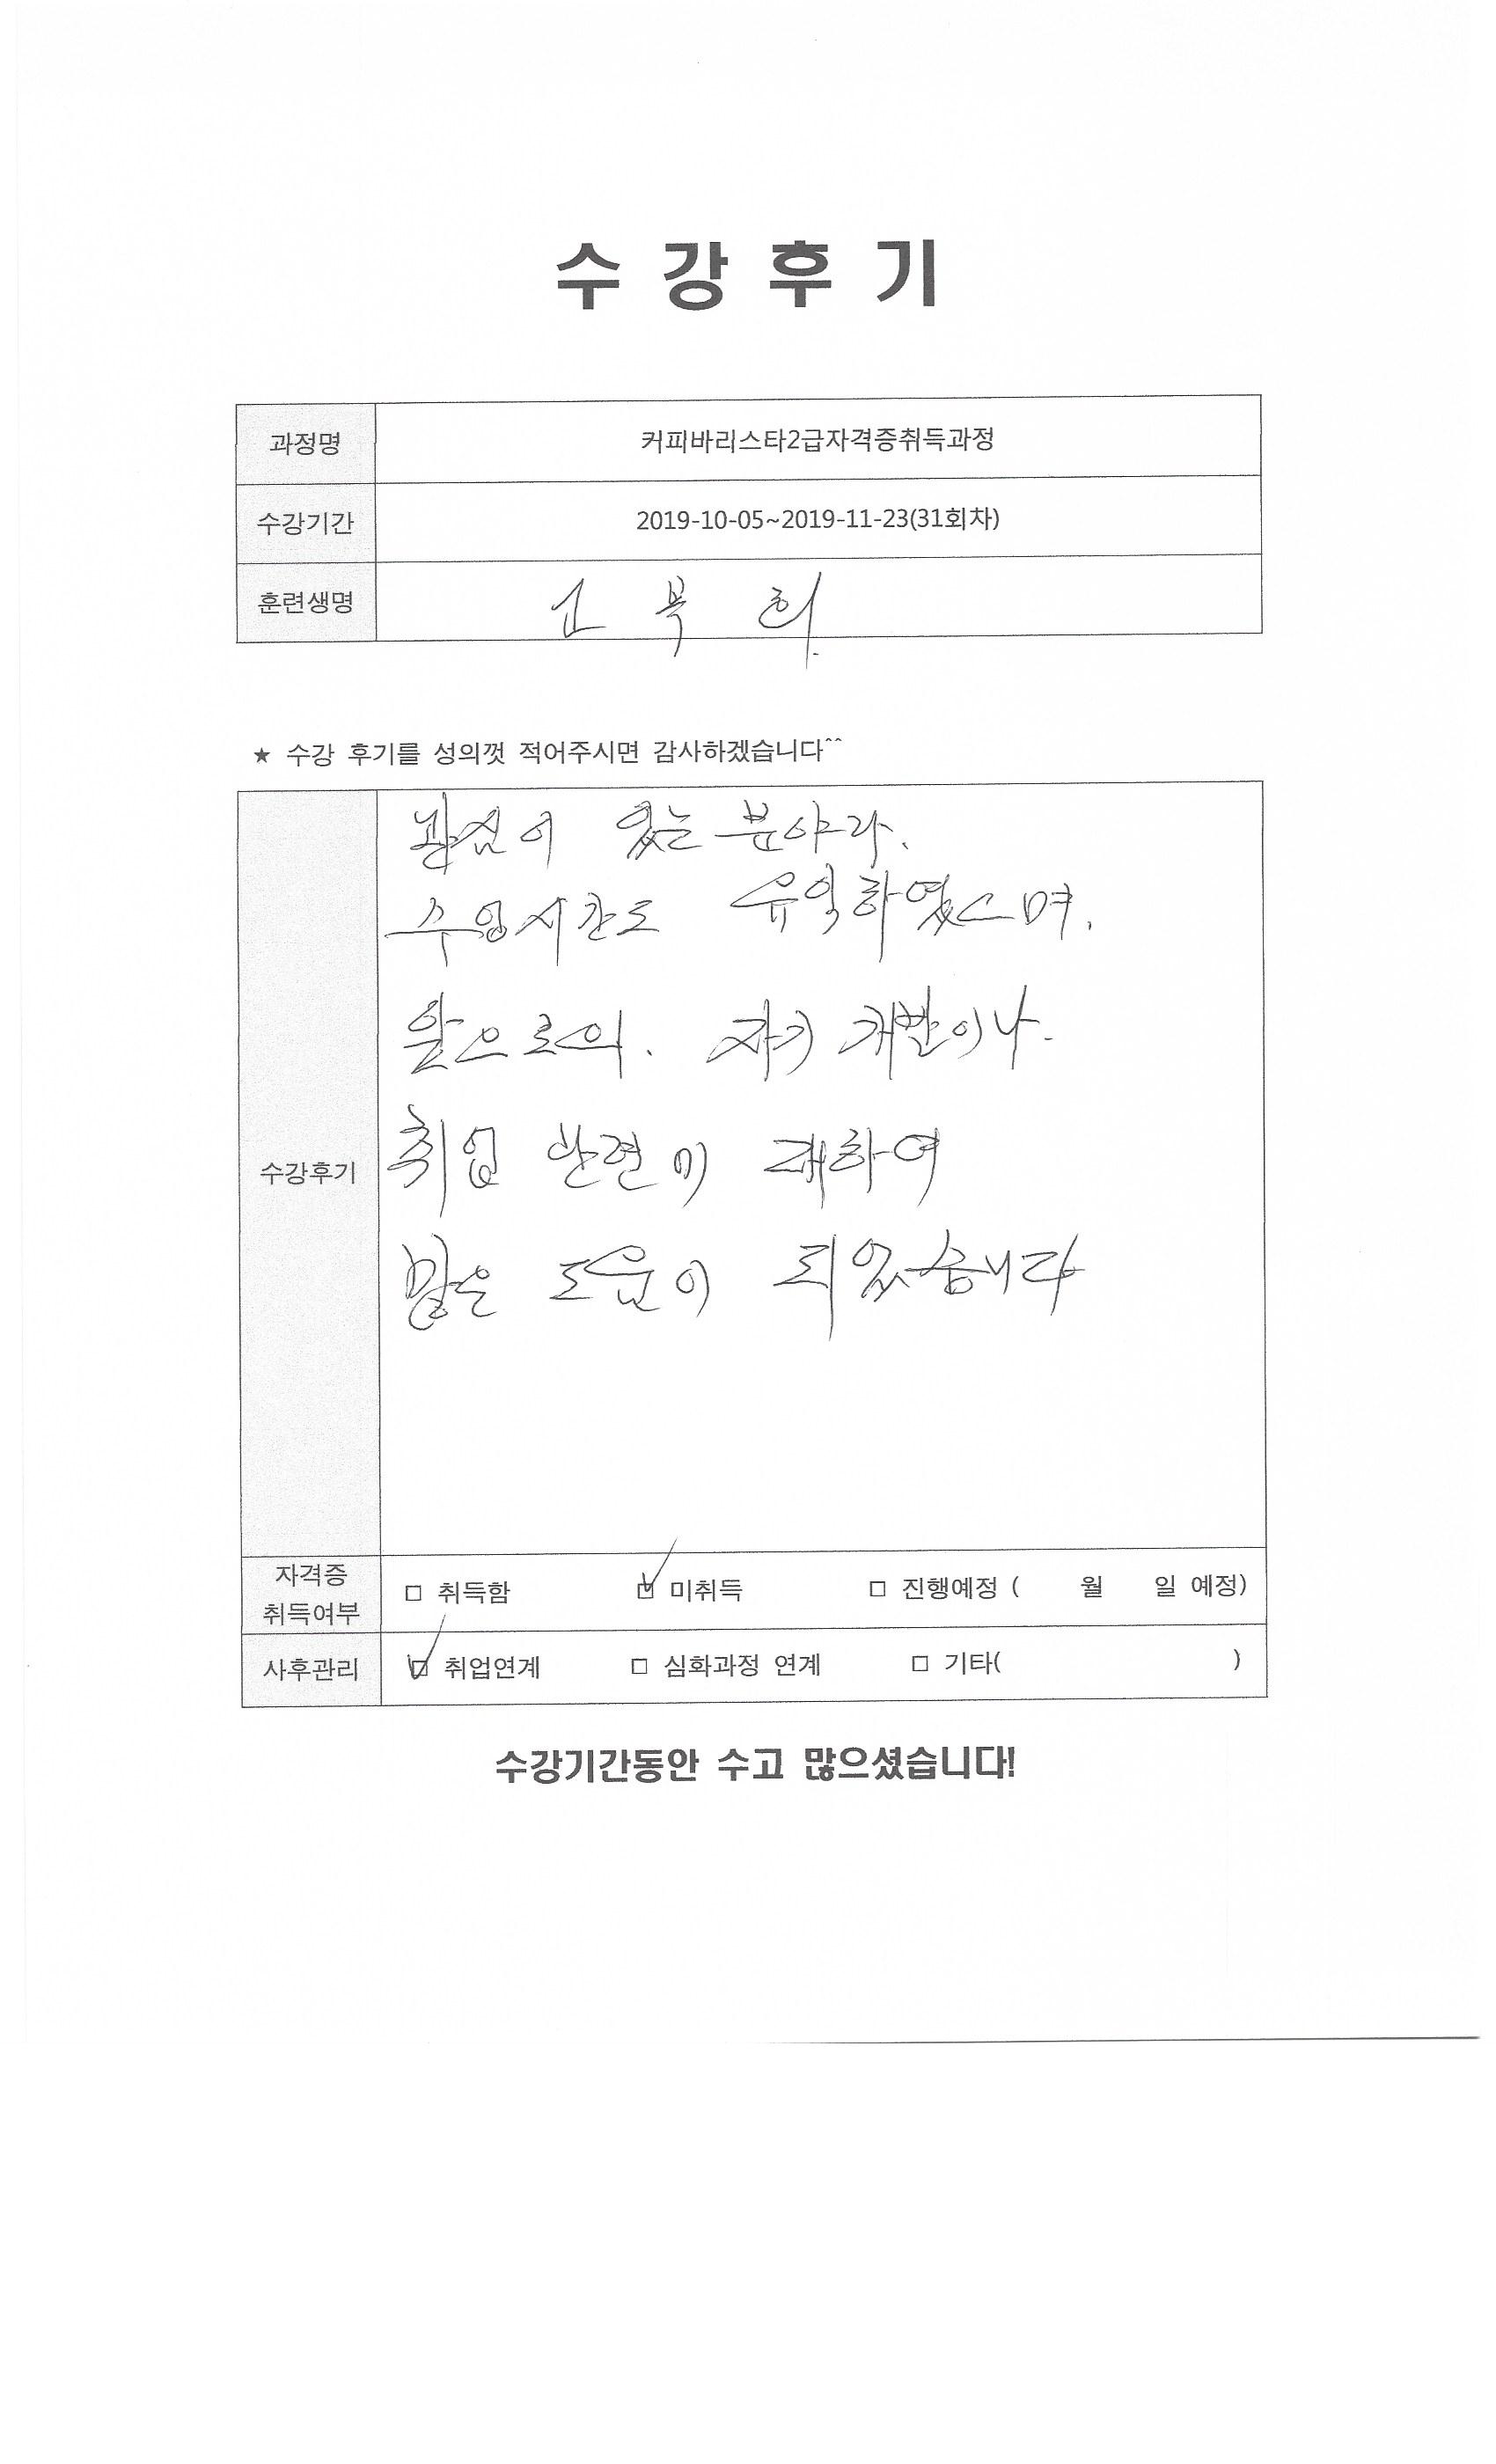 수강후기
과정명 커피바리스타2급자격증취득과정
수강기간 2019-10-05~2019-11-23(31회차)
훈련생명 고복희
★ 수강 후기를 성의껏 적어주시면 감사하겠습니다^^
수강후기
관심이 있는 분야라.
수업시간도 유익하였으며.
앞으로의. 자기 개발이나.
취업 관련에 대하여
많은 도움이 되었습니다
자격증
취득여부
□ 취득함 ☑ 미취득 □ 진행예정 ( 월 일 예정)
사후관리 ☑ 취업연계 □ 심화과정 연계 □ 기타( )
수강기간동안 수고 많으셨습니다!